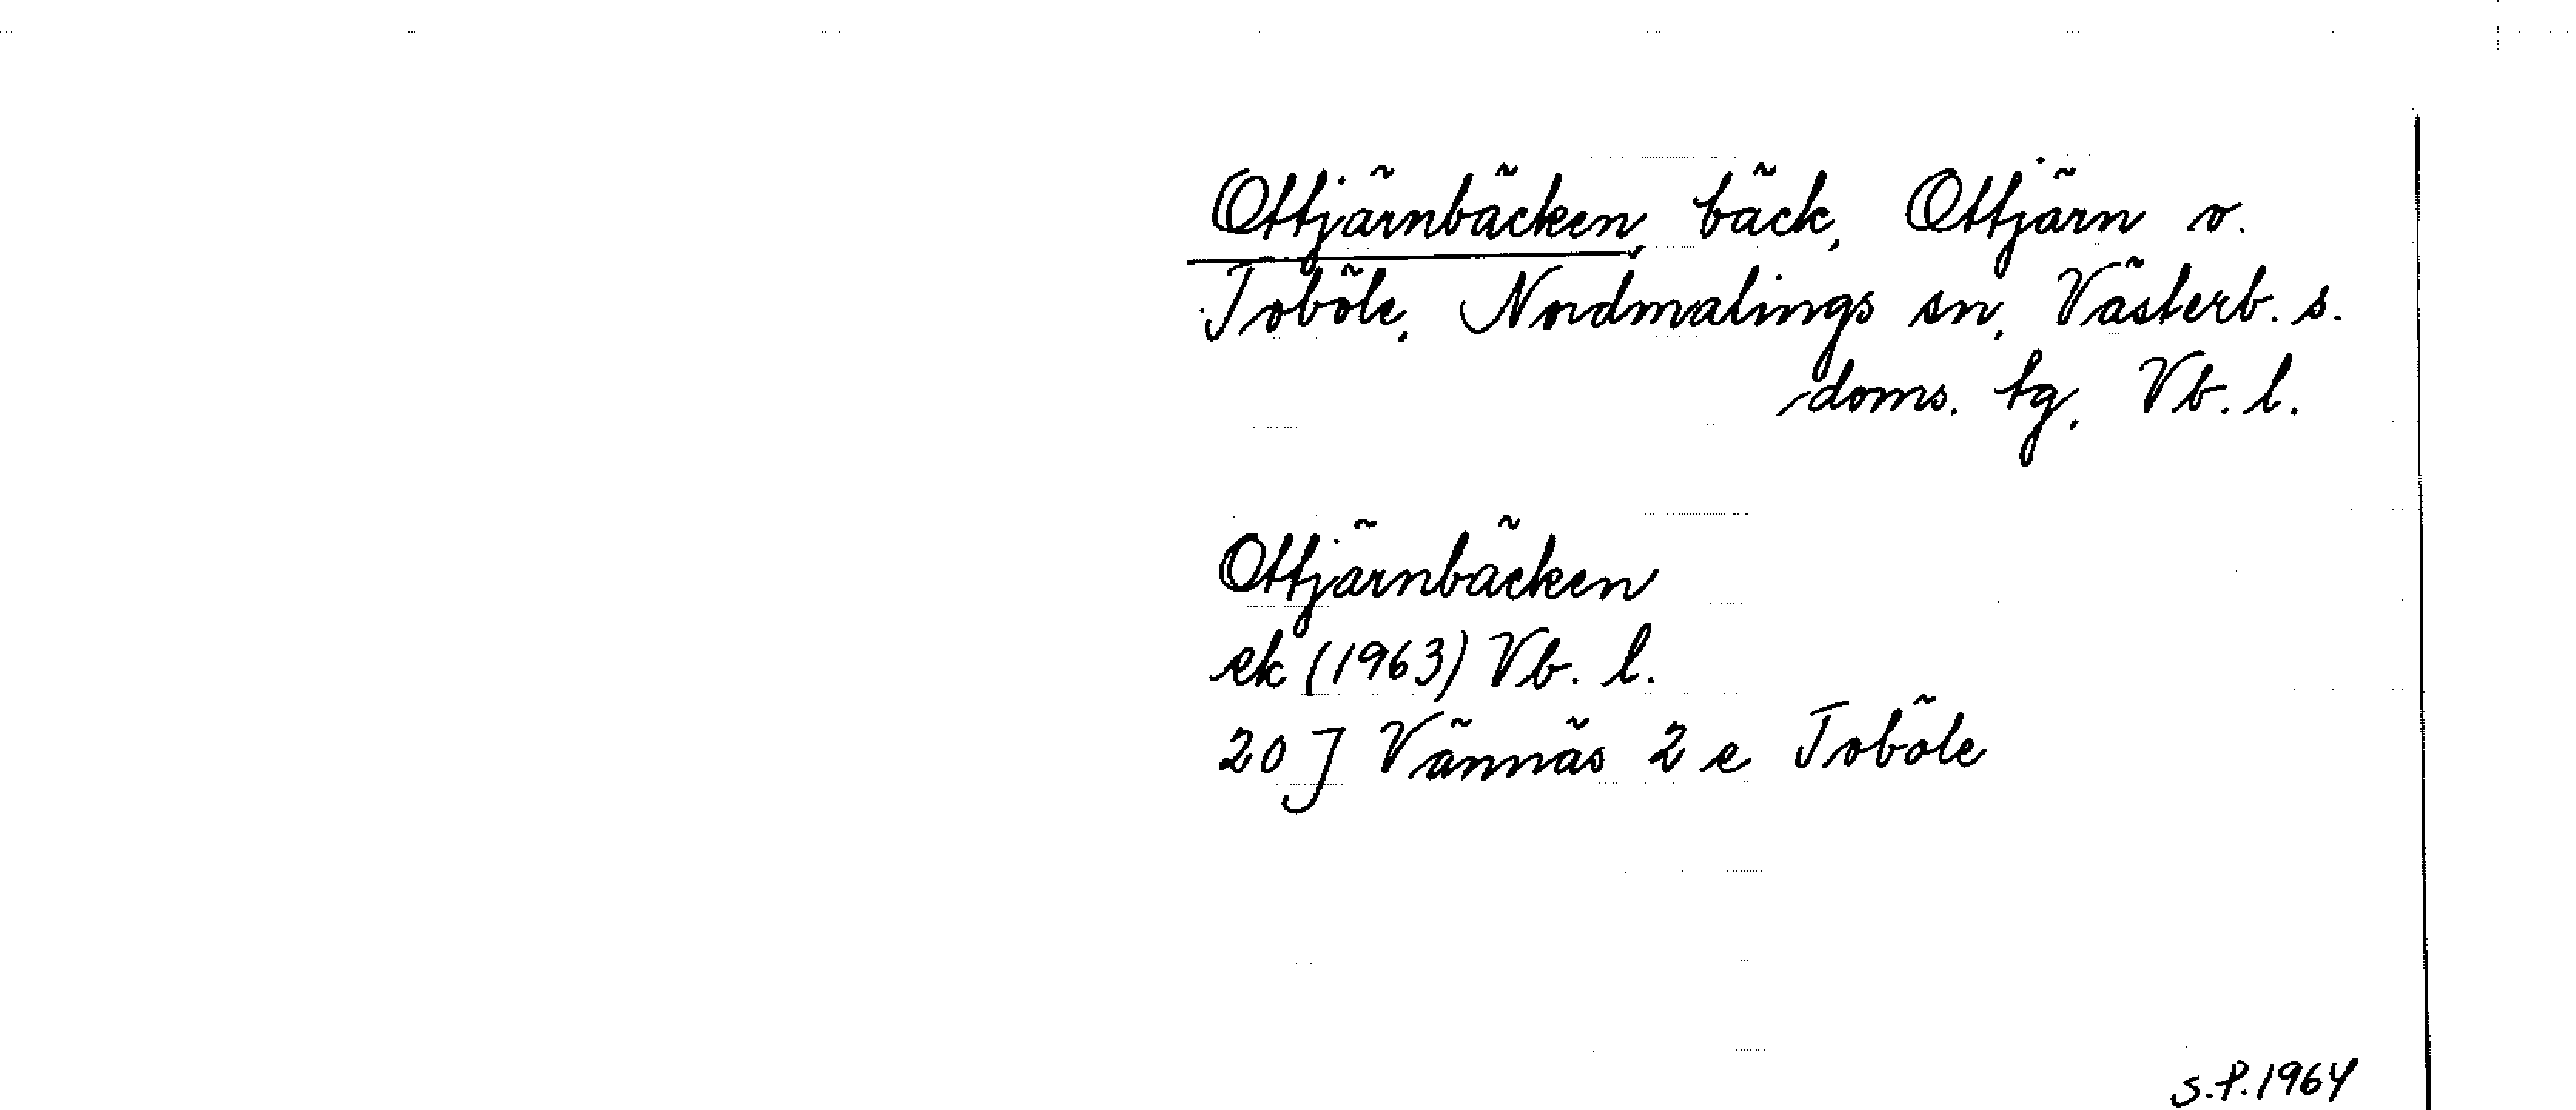 Ottjärnbäcken, bäck, Ottjärn o.
Toböle, Nordmalings sn, Västerb. s.
doms. tg, Vb. l.
Ottjärnbäcken
ek (1963) Vb. l.
20 J Vännäs 2 e Toböle
S.P. 1964